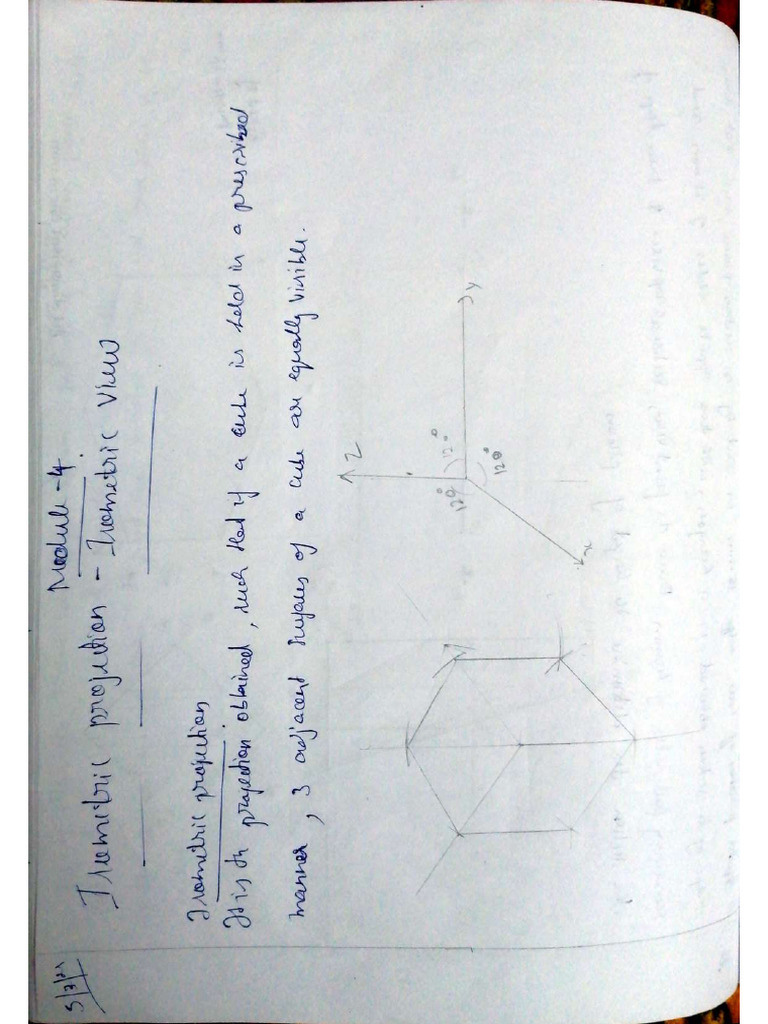 5/7/21
Module - 4
Isometric projection - Isometric View
Isometric projection
It is th projection obtained, such that if a cube is held in a prescribed
manner, 3 adjacent surfaces of a cube are equally visible.
Z
120°
120°
120°
y
x